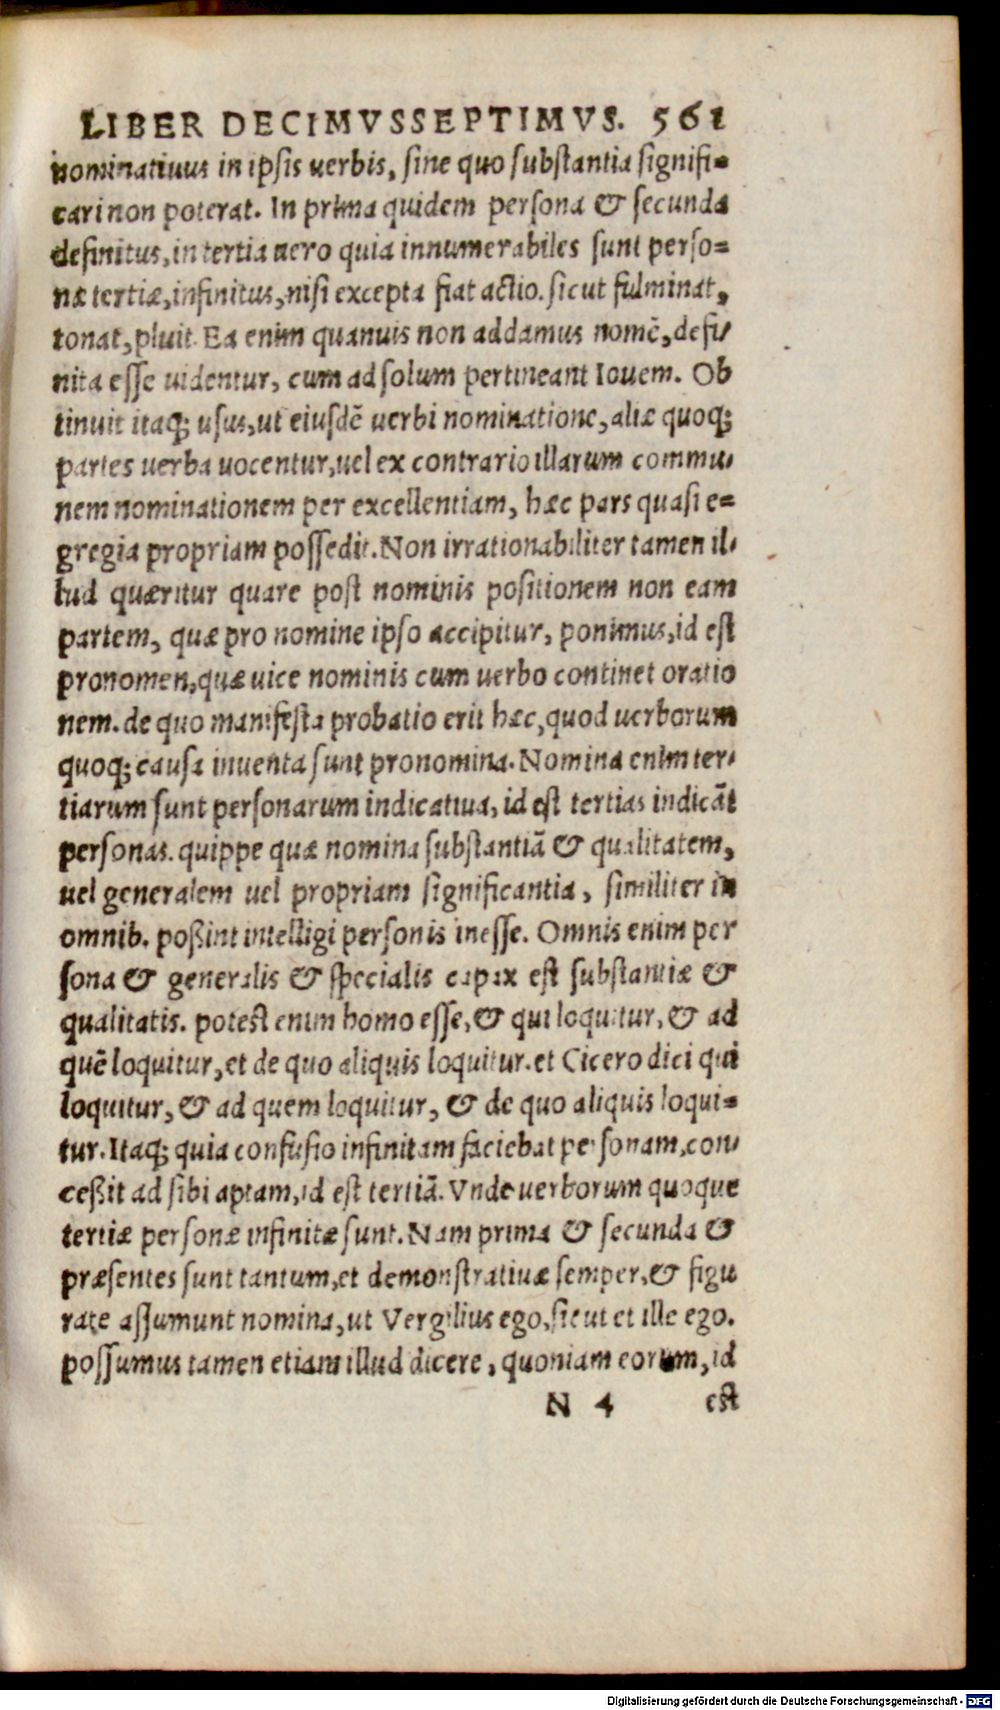 LIBER DECIMVSSEPTIMVS. 561
nominatiuus in ipsis uerbis, sine quo substantia signifi=
cari non poterat. In prima quidem persona & secunda
definitus, in tertia uero quia innumerabiles sunt perso=
næ tertiæ, infinitus, nisi excepta fiat actio. sicut fulminat,
tonat, pluit. Ea enim quanuis non addamus nomē, defi/
nita esse uidentur, cum ad solum pertineant Iouem. Ob
tinuit itaq; usus, ut eiusdē uerbi nominatione, aliæ quoq;
partes uerba uocentur, uel ex contrario illarum commu/
nem nominationem per excellentiam, hæc pars quasi e=
gregia propriam possedit. Non irrationabiliter tamen il/
lud quæritur quare post nominis positionem non eam
partem, quæ pro nomine ipso accipitur, ponimus, id est
pronomen, quæ uice nominis cum uerbo continet oratio
nem. de quo manifesta probatio erit hæc, quod uerborum
quoq; causa inuenta sunt pronomina. Nomina enim ter/
tiarum sunt personarum indicatiua, id est tertias indicāt
personas. quippe quæ nomina substantiā & qualitatem,
uel generalem uel propriam significantia, similiter in
omnib. poßint intelligi personis inesse. Omnis enim per
sona & generalis & specialis capax est substantiæ &
qualitatis. potest enim homo esse, & qui loquitur, & ad
quē loquitur, et de quo aliquis loquitur. et Cicero dici qui
loquitur, & ad quem loquitur, & de quo aliquis loqui=
tur. Itaq; quia confusio infinitam faciebat personam, con/
ceßit ad sibi aptam, id est tertiā. Vnde uerborum quoque
tertiæ personæ infinitæ sunt. Nam prima & secunda &
præsentes sunt tantum, et demonstratiuæ semper, & figu
rate assumunt nomina, ut Vergilius ego, sicut et ille ego.
possumus tamen etiam illud dicere, quoniam eorum, id
N 4 est
Digitalisierung gefördert durch die Deutsche Forschungsgemeinschaft - DFG